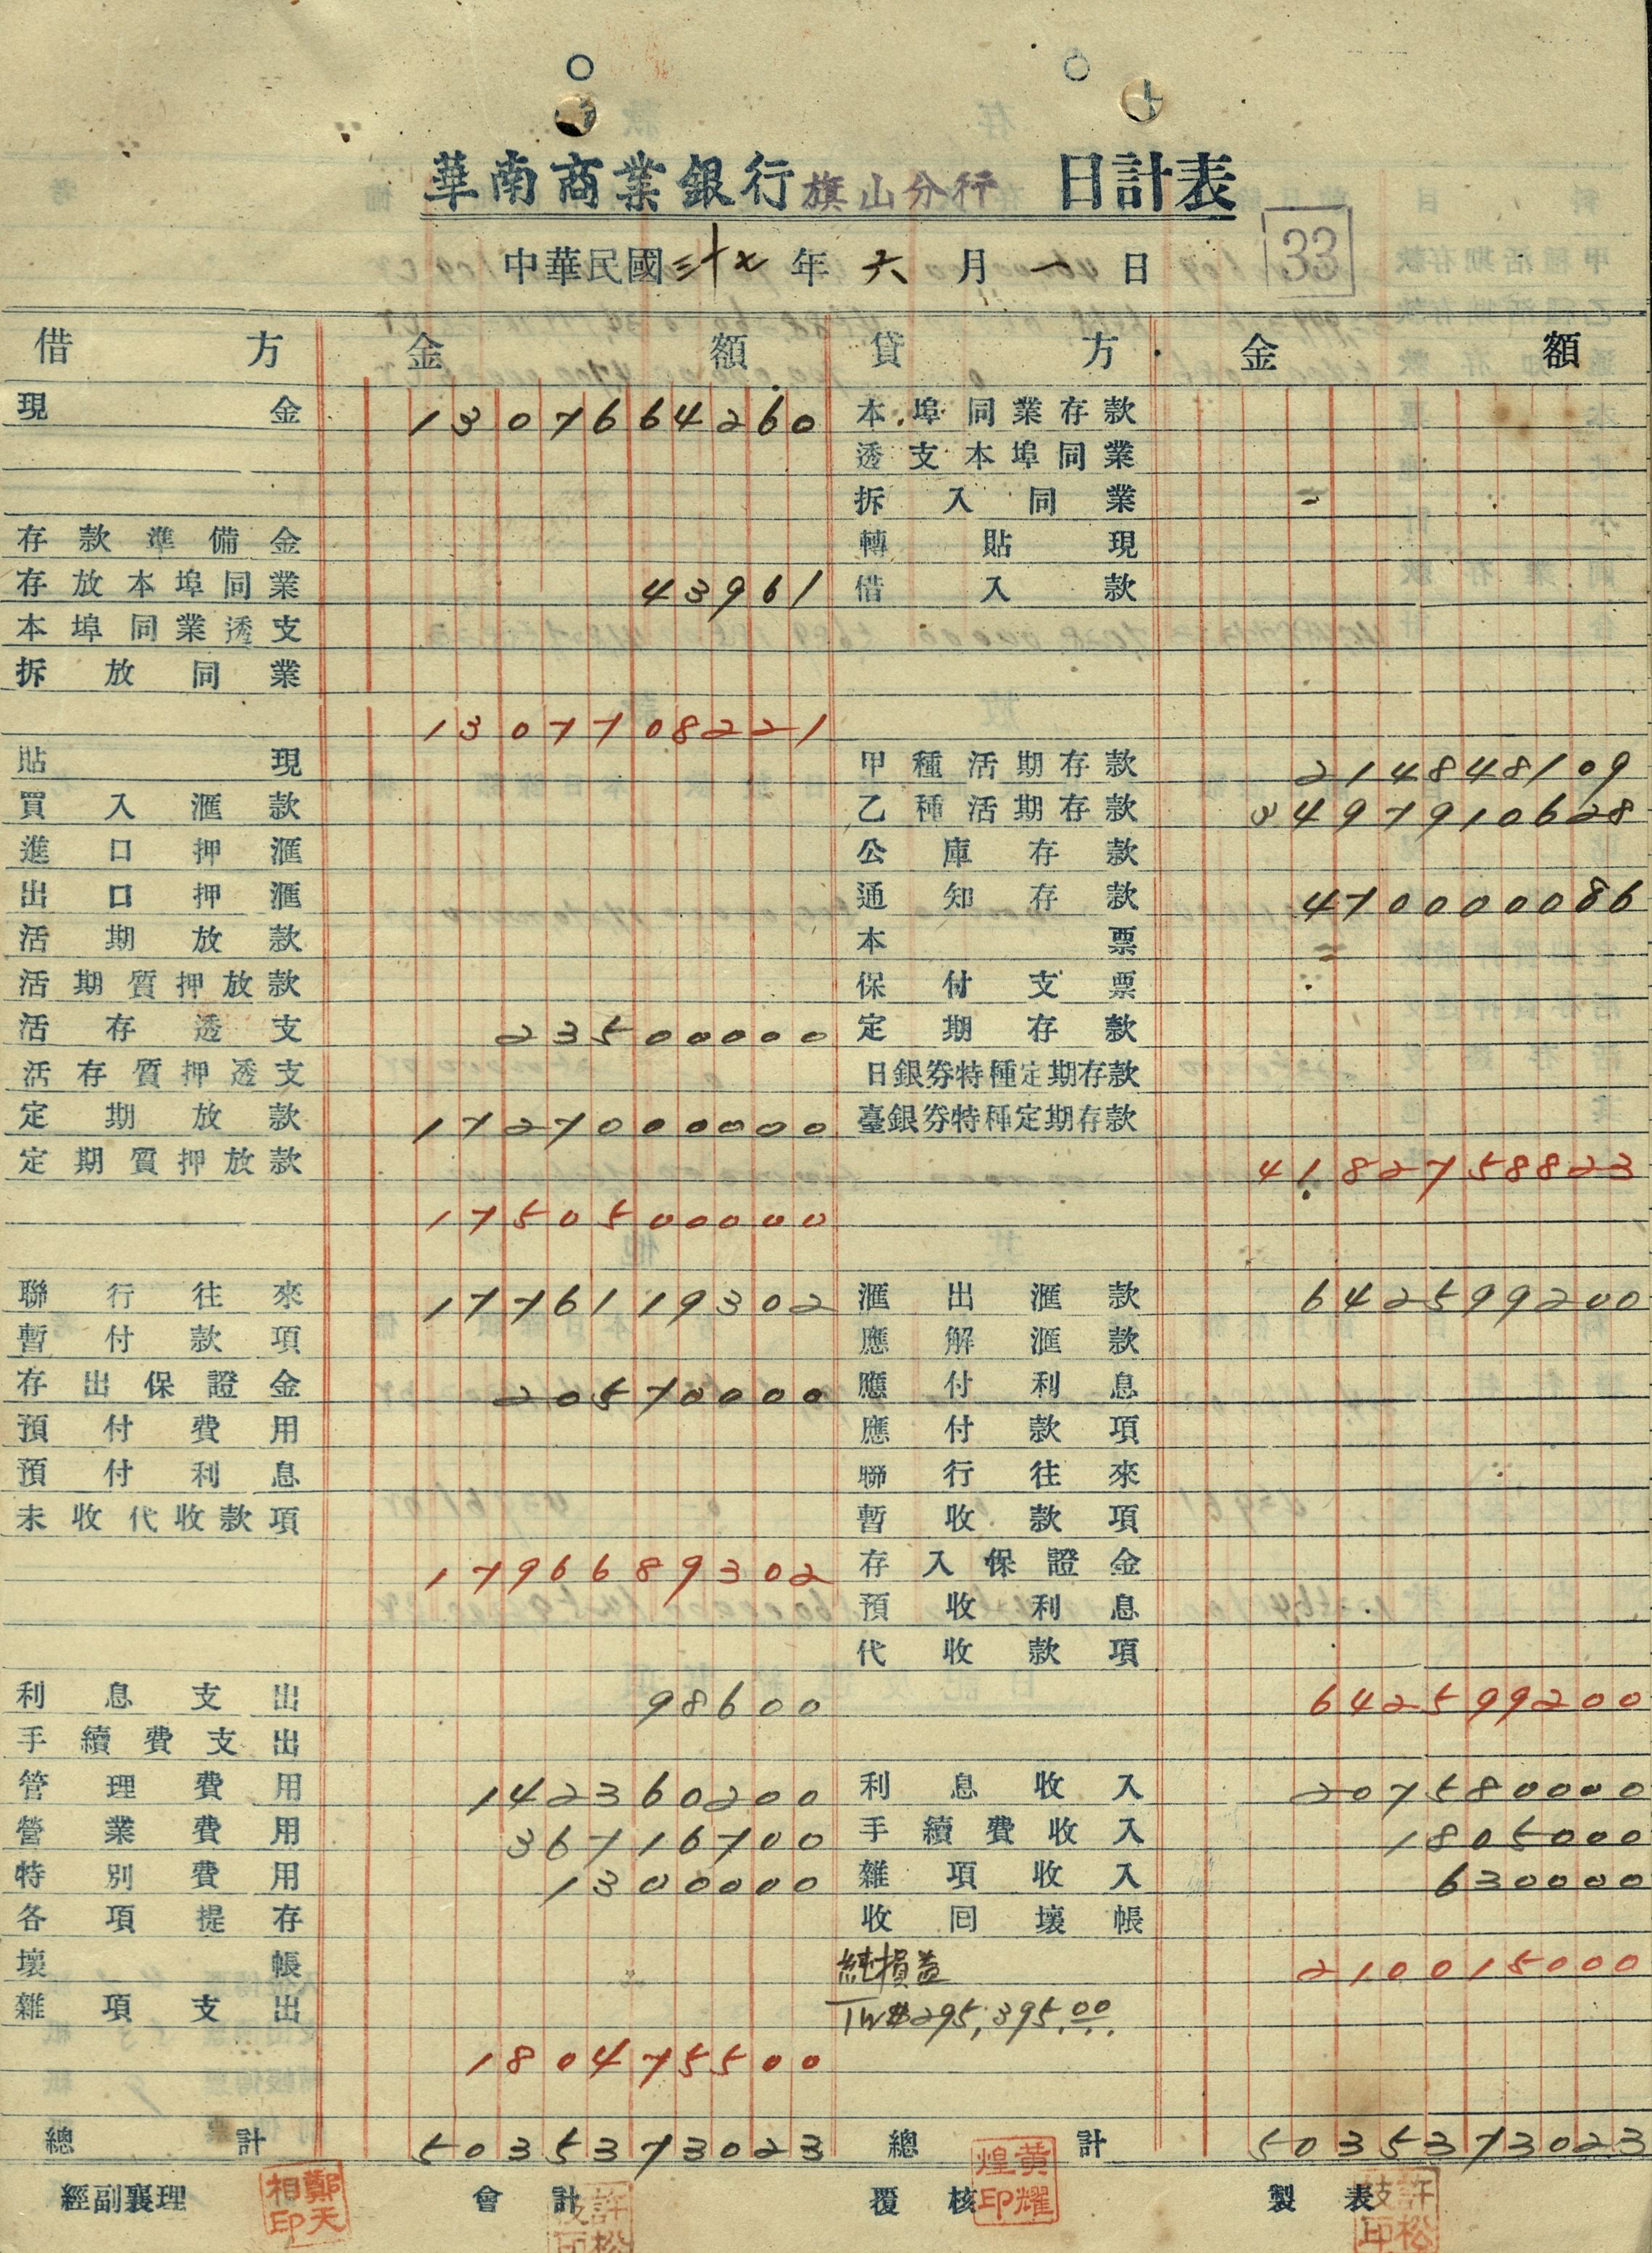 華南商業銀行旗山分行 日計表
中華民國三十七年六月一日 33
借方 金額 貸方 金額
現金 1307664260 本埠同業存款
透支本埠同業
拆入同業
存款準備金 轉貼現
存放本埠同業 43961 借入款
本埠同業透支
拆放同業
1307708221
貼現 甲種活期存款 214848109
買入滙款 乙種活期存款 3497910628
進口押滙 公庫存款
出口押滙 通知存款 470000086
活期放款 本票
活期質押放款 保付支票
活存透支 23500000 定期存款
活存質押透支 日銀券特種定期存款
定期放款 1727000000 臺銀券特種定期存款
定期質押放款 4182758823
1750500000
聯行往來 1776119302 滙出滙款 642599200
暫付款項 應解滙款
存出保證金 20570000 應付利息
預付費用 應付款項
預付利息 聯行往來
未收代收款項 暫收款項
1796689302 存入保證金
預收利息
代收款項
利息支出 98600 642599200
手續費支出
管理費用 142360200 利息收入 207580000
營業費用 36716700 手續費收入 1805000
特別費用 1300000 雜項收入 630000
各項提存 收回壞帳
壞帳 純損益 210015000
雜項支出 TW$295,395.00
180475500
總計 5035373023 總計 5035373023
經副襄理 鄭天相印 會計 覆核 黃耀煌印 製表